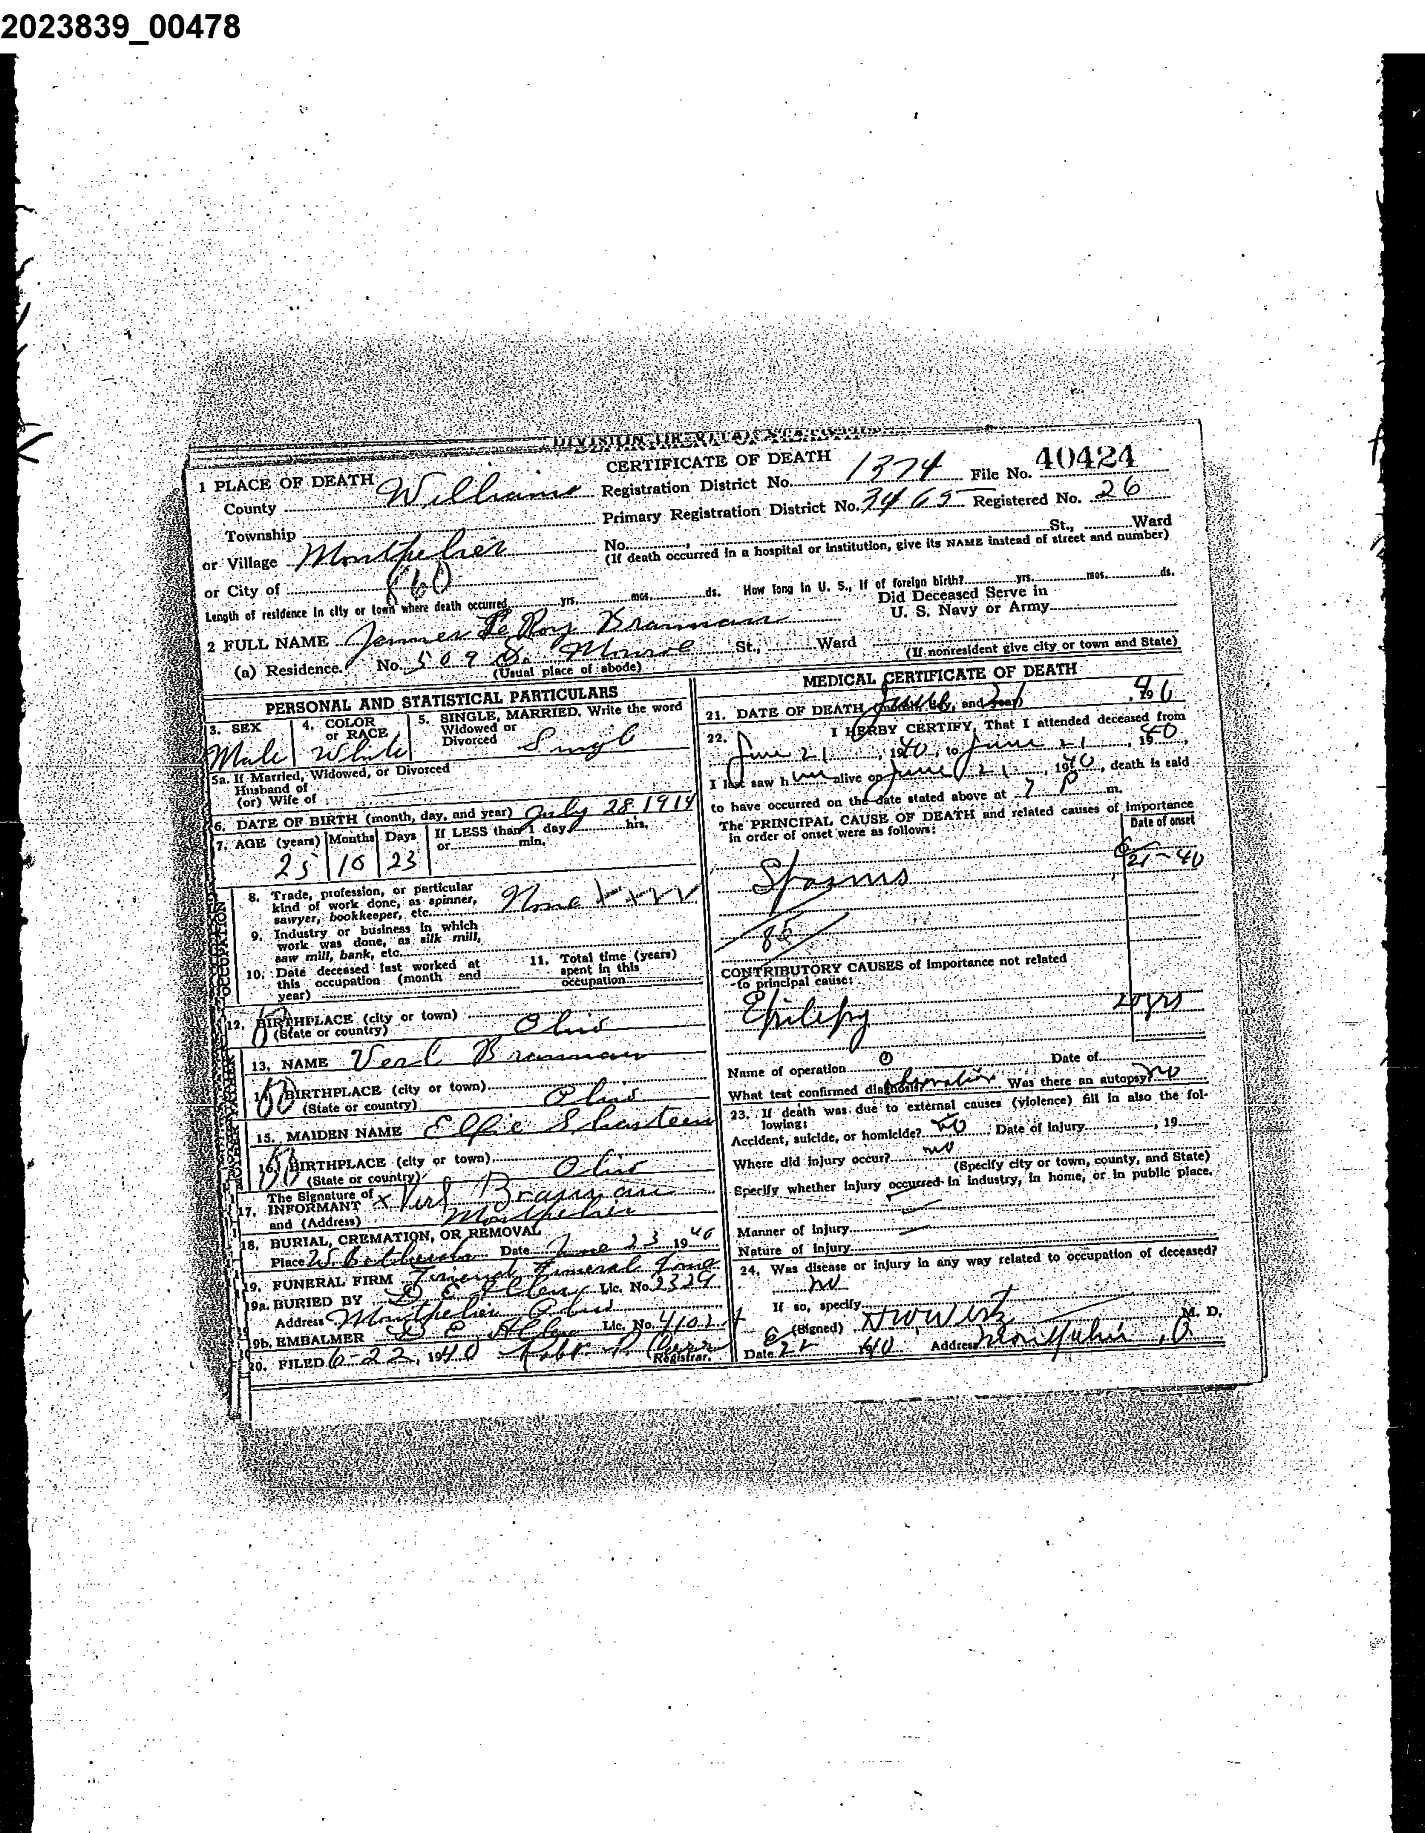 2023839_00478
CERTIFICATE OF DEATH
1 PLACE OF DEATH
County Williams
Registration District No. 1374 File No. 40424
Township
Primary Registration District No. 3465 Registered No. 26
or Village Montpelier
No. St., Ward
(If death occurred in a hospital or institution, give its NAME instead of street and number)
or City of
Length of residence in city or town where death occurred yrs. mos. ds. How long in U. S., if of foreign birth? yrs. mos. ds.
Did Deceased Serve in
U. S. Navy or Army
2 FULL NAME Le Roy Brannan
(a) Residence. No. 509 Monroe St., Ward
(Usual place of abode) (If nonresident give city or town and State)
PERSONAL AND STATISTICAL PARTICULARS
3. SEX Male
4. COLOR or RACE White
5. SINGLE, MARRIED, Write the word
Widowed or
Divorced Single
5a. If Married, Widowed, or Divorced
Husband of
(or) Wife of
6. DATE OF BIRTH (month, day, and year) July 28 1914
7. AGE (years) Months Days If LESS than 1 day hrs.
or min.
25 10 23
OCCUPATION
8. Trade, profession, or particular
kind of work done, as spinner,
sawyer, bookkeeper, etc. None
9. Industry or business in which
work was done, as silk mill,
saw mill, bank, etc.
10. Date deceased last worked at
this occupation (month and
year)
11. Total time (years)
spent in this
occupation
12. BIRTHPLACE (city or town)
(State or country) Ohio
13. NAME Verl Brannan
14. BIRTHPLACE (city or town)
(State or country) Ohio
15. MAIDEN NAME Effie Shasteen
16. BIRTHPLACE (city or town)
(State or country) Ohio
17. The Signature of
INFORMANT x Verl Brannan
and (Address) Montpelier
18. BURIAL, CREMATION, OR REMOVAL
Place Date June 23 1940
19. FUNERAL FIRM Funeral Home
19a. BURIED BY Lic. No. 2329
Address Montpelier Ohio
19b. EMBALMER Lic. No.
20. FILED 6-22, 1940
Registrar.
MEDICAL CERTIFICATE OF DEATH
21. DATE OF DEATH (month, day, and year) June 21, 19
22. I HEREBY CERTIFY, That I attended deceased from
June 21, 1940, to June 21, 1940,
I last saw him alive on June 21, 1940, death is said
to have occurred on the date stated above at 7 P m.
The PRINCIPAL CAUSE OF DEATH and related causes of importance
in order of onset were as follows: Date of onset
Spasms 6/21-40
85
CONTRIBUTORY CAUSES of importance not related
to principal cause:
Epilepy 20 yrs
Name of operation 0 Date of
What test confirmed diagnosis? observation Was there an autopsy? no
23. If death was due to external causes (violence) fill in also the fol-
lowing:
Accident, suicide, or homicide? no Date of injury , 19
Where did injury occur? no
(Specify city or town, county, and State)
Specify whether injury occurred in industry, in home, or in public place.
Manner of injury
Nature of injury
24. Was disease or injury in any way related to occupation of deceased?
no
If so, specify
(Signed) M. D.
Date 6 22 1940 Address Montpelier, O